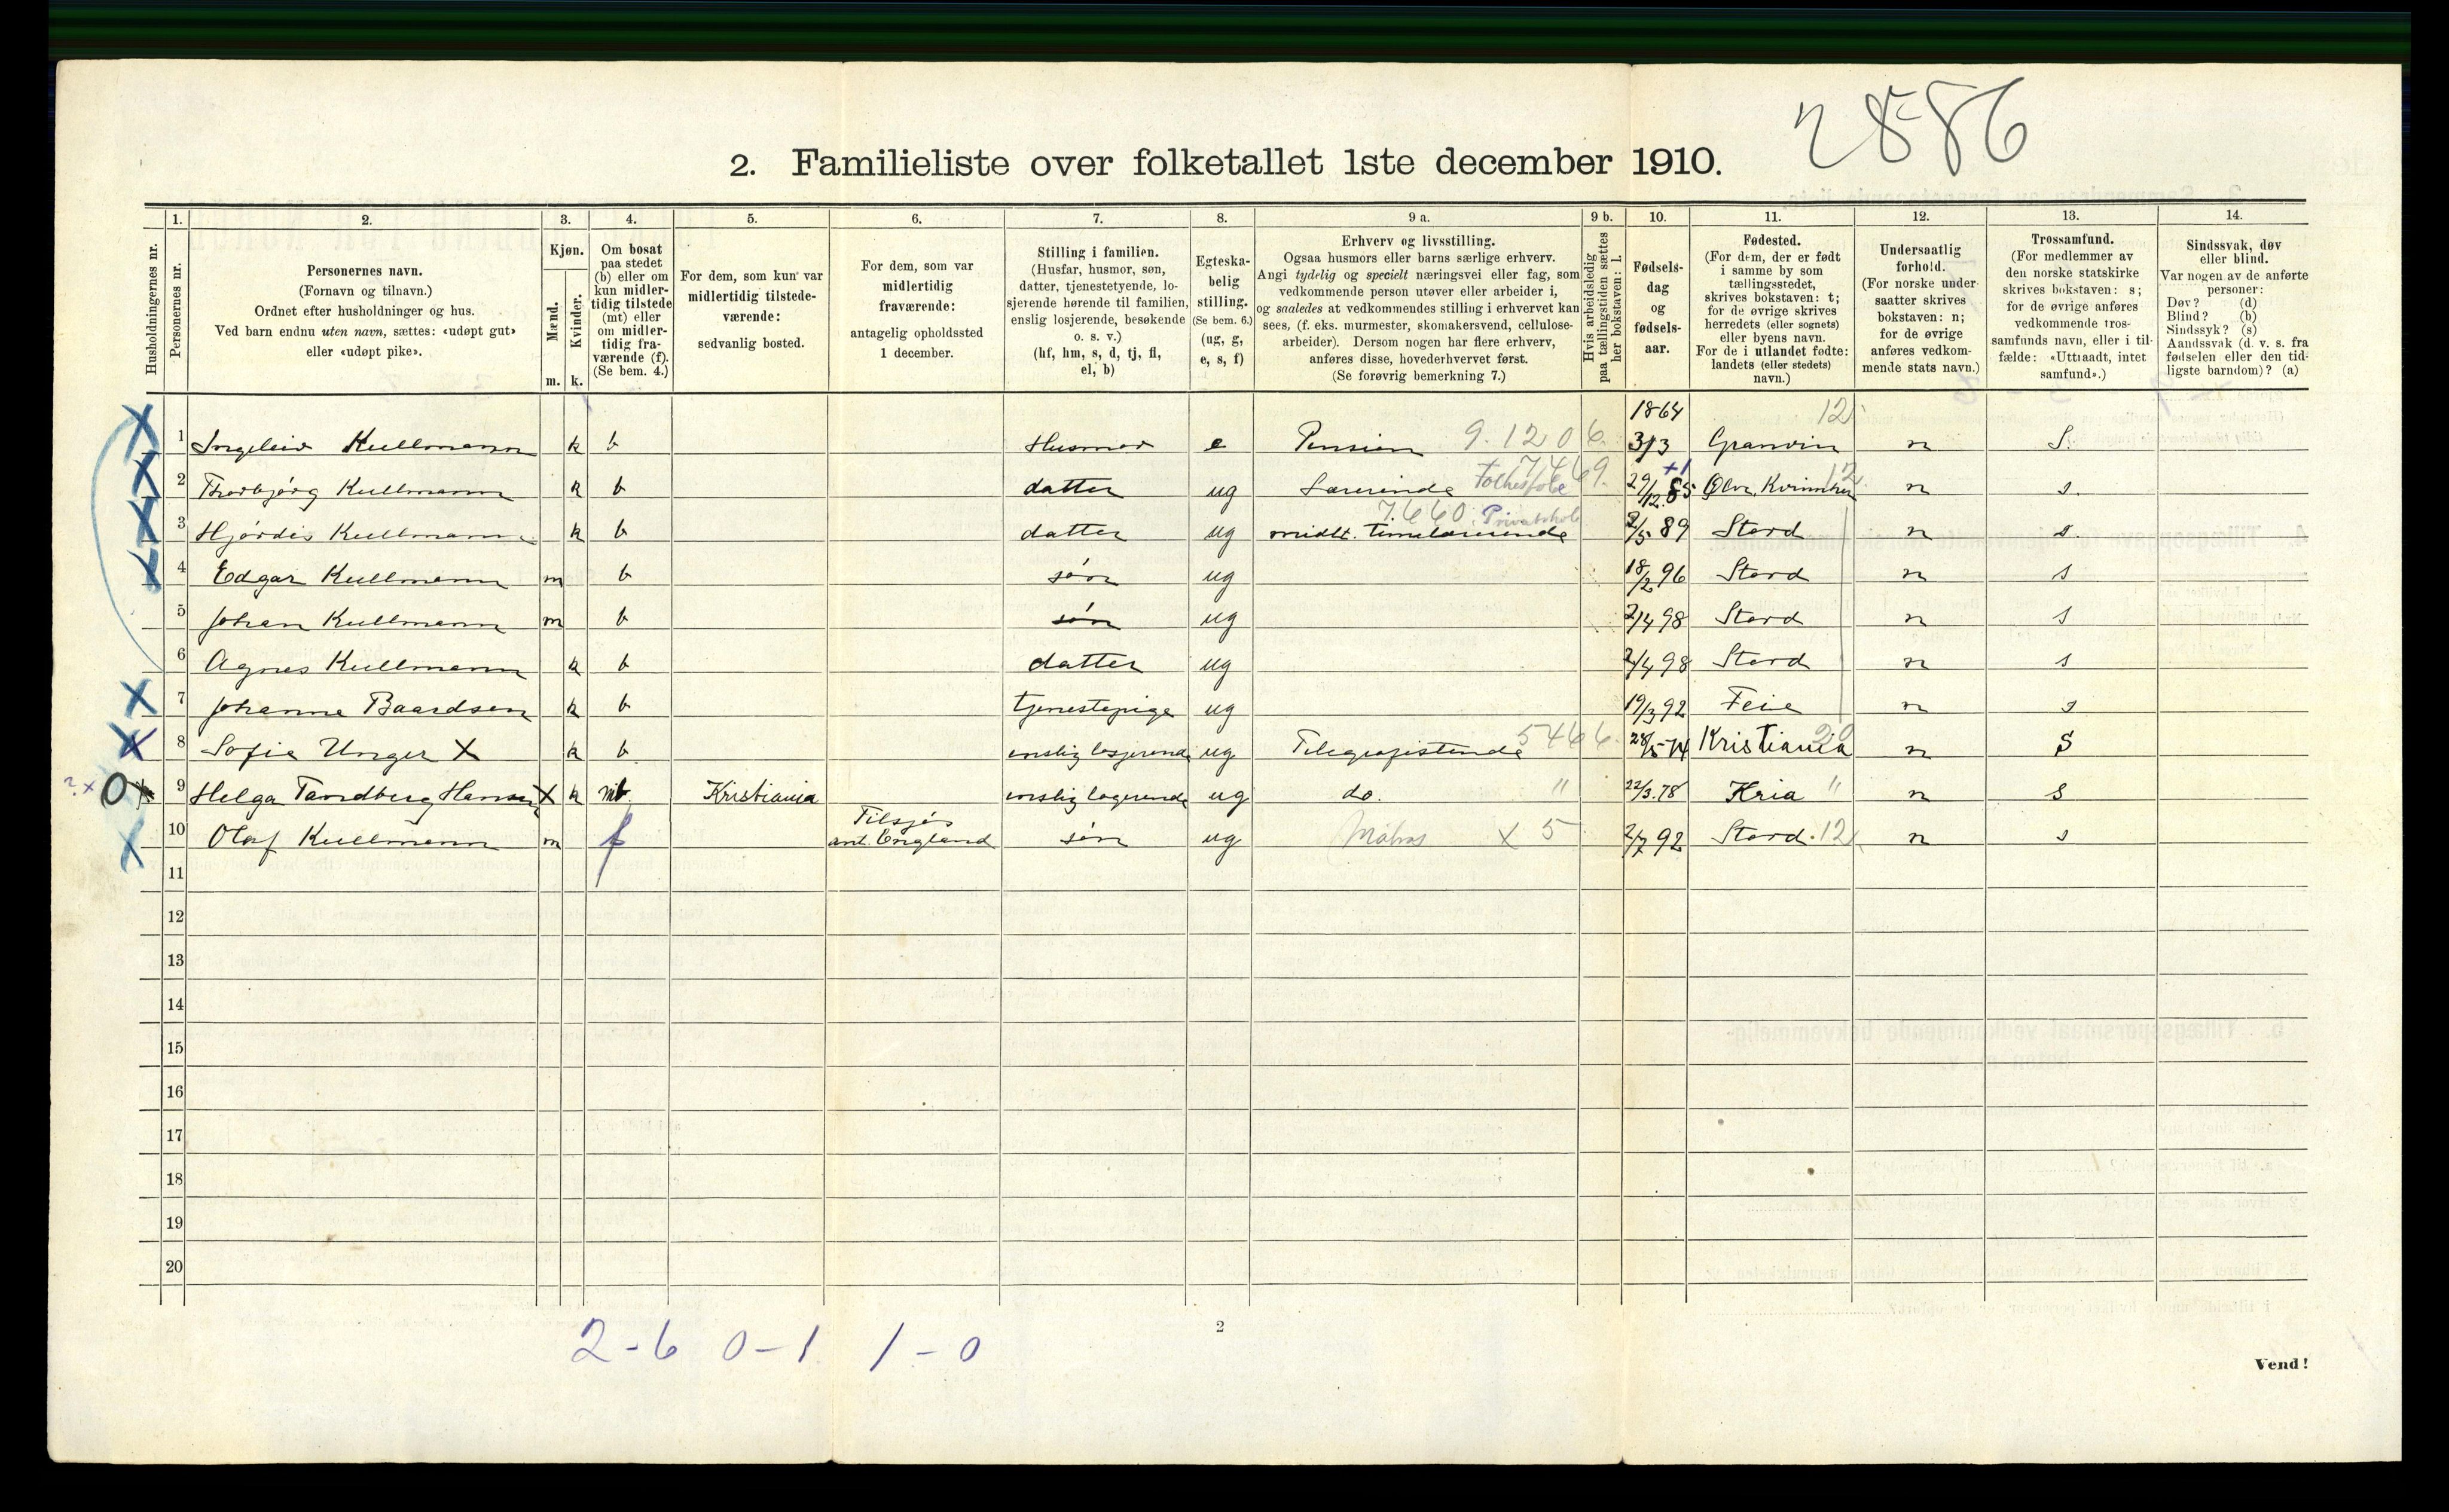 2886
2. Familieliste over folketallet 1ste december 1910.
Husholdningernes nr.
1. Personernes nr.
2. Personernes navn.
(Fornavn og tilnavn.)
Ordnet efter husholdninger og hus.
Ved barn endnu uten navn, sættes: «udøpt gut»
eller «udøpt pike».
3. Kjøn.
Mænd. Kvinder.
m. k.
4. Om bosat
paa stedet
(b) eller om
kun midler-
tidig tilstede
(mt) eller
om midler-
tidig fra-
værende (f).
(Se bem. 4.)
5. For dem, som kun var
midlertidig tilstede-
værende:
sedvanlig bosted.
6. For dem, som var
midlertidig
fraværende:
antagelig opholdssted
1 december.
7. Stilling i familien.
(Husfar, husmor, søn,
datter, tjenestetyende, lo-
sjerende hørende til familien,
enslig losjerende, besøkende
o. s. v.)
(hf, hm, s, d, tj, fl,
el, b)
8. Egteska-
belig
stilling.
(Se bem. 6.)
(ug, g,
e, s, f)
9 a. Erhverv og livsstilling.
Ogsaa husmors eller barns særlige erhverv.
Angi tydelig og specielt næringsvei eller fag, som
vedkommende person utøver eller arbeider i,
og saaledes at vedkommendes stilling i erhvervet kan
sees, (f. eks. murmester, skomakersvend, cellulose-
arbeider). Dersom nogen har flere erhverv,
anføres disse, hovederhvervet først.
(Se forøvrig bemerkning 7.)
9 b. Hvis arbeidsledig
paa tællingstiden sættes
her bokstaven: l.
10. Fødsels-
dag
og
fødsels-
aar.
11. Fødested.
(For dem, der er født
i samme by som
tællingsstedet,
skrives bokstaven: t;
for de øvrige skrives
herredets (eller sognets)
eller byens navn.
For de i utlandet fødte:
landets (eller stedets)
navn.)
12. Undersaatlig
forhold.
(For norske under-
saatter skrives
bokstaven: n;
for de øvrige
anføres vedkom-
mende stats navn.)
13. Trossamfund.
(For medlemmer av
den norske statskirke
skrives bokstaven: s;
for de øvrige anføres
vedkommende tros-
samfunds navn, eller i til-
fælde: «Uttraadt, intet
samfund».)
14. Sindssvak, døv
eller blind.
Var nogen av de anførte
personer:
Døv? (d)
Blind? (b)
Sindssyk? (s)
Aandssvak (d. v. s. fra
fødselen eller den tid-
ligste barndom)? (a)
1864 12
X 1 Ingeleiv Kullmann k b Husmor e Pension 9.120 6. 3/3 Granvin n S.
X 2 Thorbjørg Kullmann k b datter ug Lærerinde Folkeskole 29/12 85 n s.
7.660. Privatskole
X 3 Hjørdis Kullmann k b datter ug midlt. timelærerinde 2/5 89 Stord n s.
X 4 Edgar Kullmann m b søn ug 18/2 96 Stord n s
5 Johan Kullmann m b søn ug 2/4 98 Stord n s
6 Agnes Kullmann k b datter ug 2/4 98 Stord n s
X 7 Johanne Baardsen k b tjenestepige ug 19/3 92 Feie n s
X 8 Sofie Unger X k b enslig losjerende ug Telegrafistinde 5466. 28/5-74 Kristiania n S
?x 0x 9 Helga Tandberg Hansen X k Kristiania enslig logerende ug do. " 22/3.78 Kria " n s
Tilsjøs
X 10 Olaf Kullmann m f ant. England søn ug Matros X 5 2/7 92 Stord. 12 n s
11
12
13
14
15
16
17
18
19
20
2-6 0-1 1-0
2
Vend!